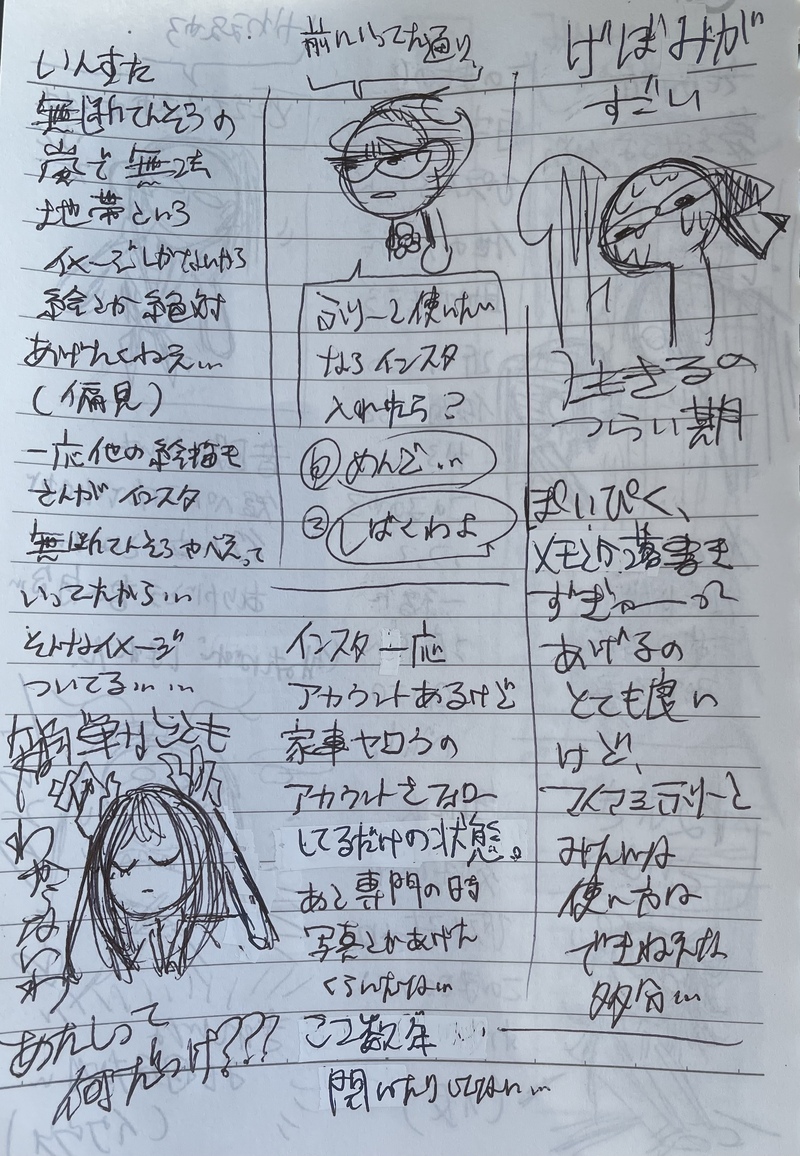 いんすた
無断てんそうの
嵐で無法
地帯という
イメージしかないから
絵とか絶対
あげたくねえ…
(偏見)
一応他の絵描き
さんがインスタ
無断てんそうやべえって
いってたから…
そんなイメージ
ついてる……
簡単なことも
わからないわ
あたしって
何だっけ???
前にいってた通り、
ふりーと使いたい
ならインスタ
入れたら?
① めんど…
② しばくわよ
インスタ一応
アカウントあるけど
家事ヤロウの
アカウントをフォロー
してるだけの状態。
あと専門の時
写真とかあげた
くらいだな…
ここ数年
開いたりしてない…
げぼみが
すごい
生きるの
つらい期
ぽいぴく、
メモとか落書き
すぎゃーが
あげるの
とても良い
けど、
マイマミふりーと
みたいな
使い方は
できねえな
多分…